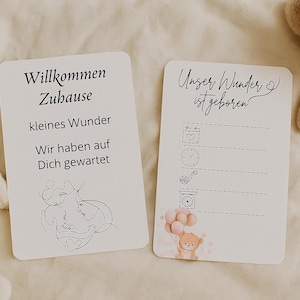 Willkommen
Zuhause
kleines Wunder
Wir haben auf
Dich gewartet
Unser Wunder
ist geboren